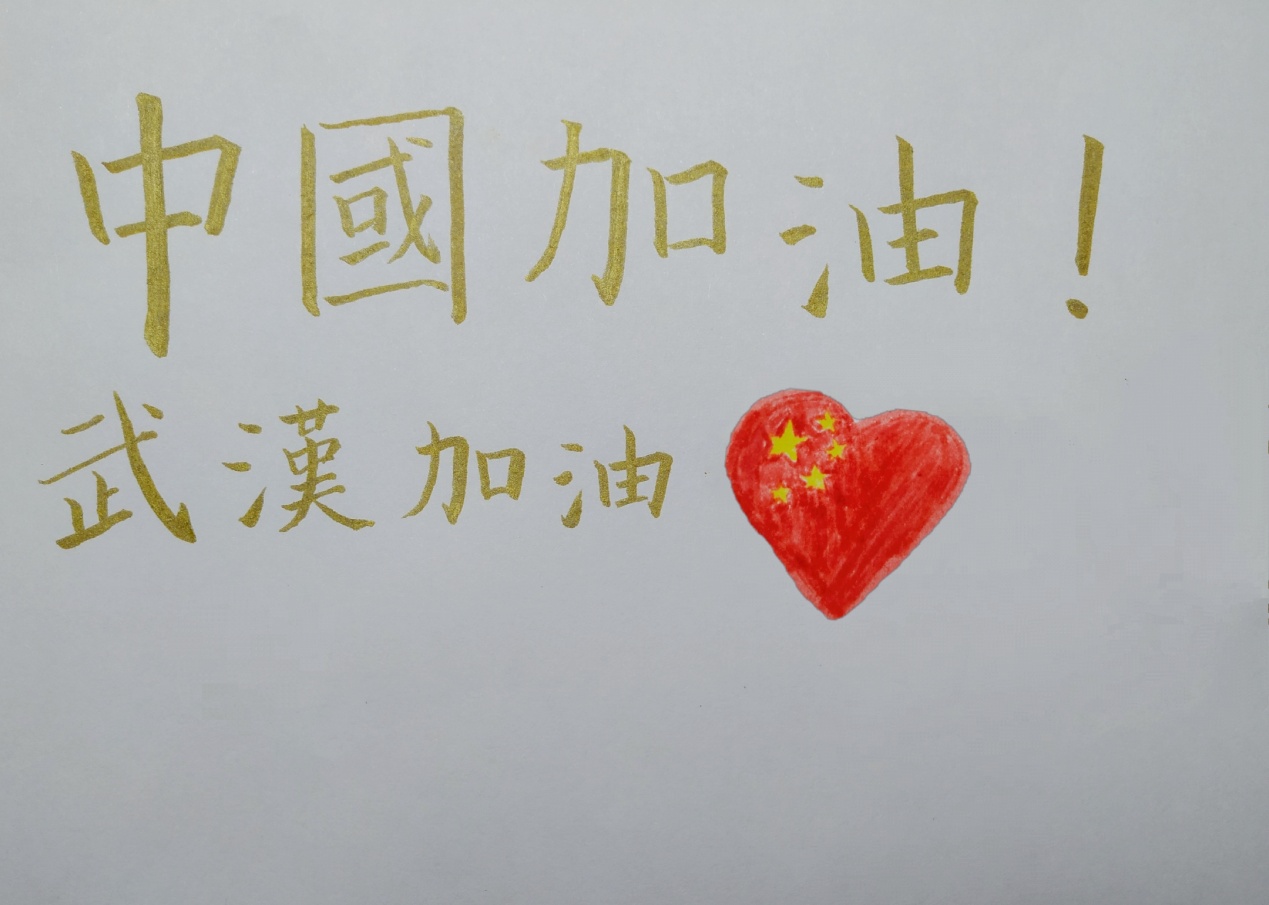 中國加油！
武漢加油